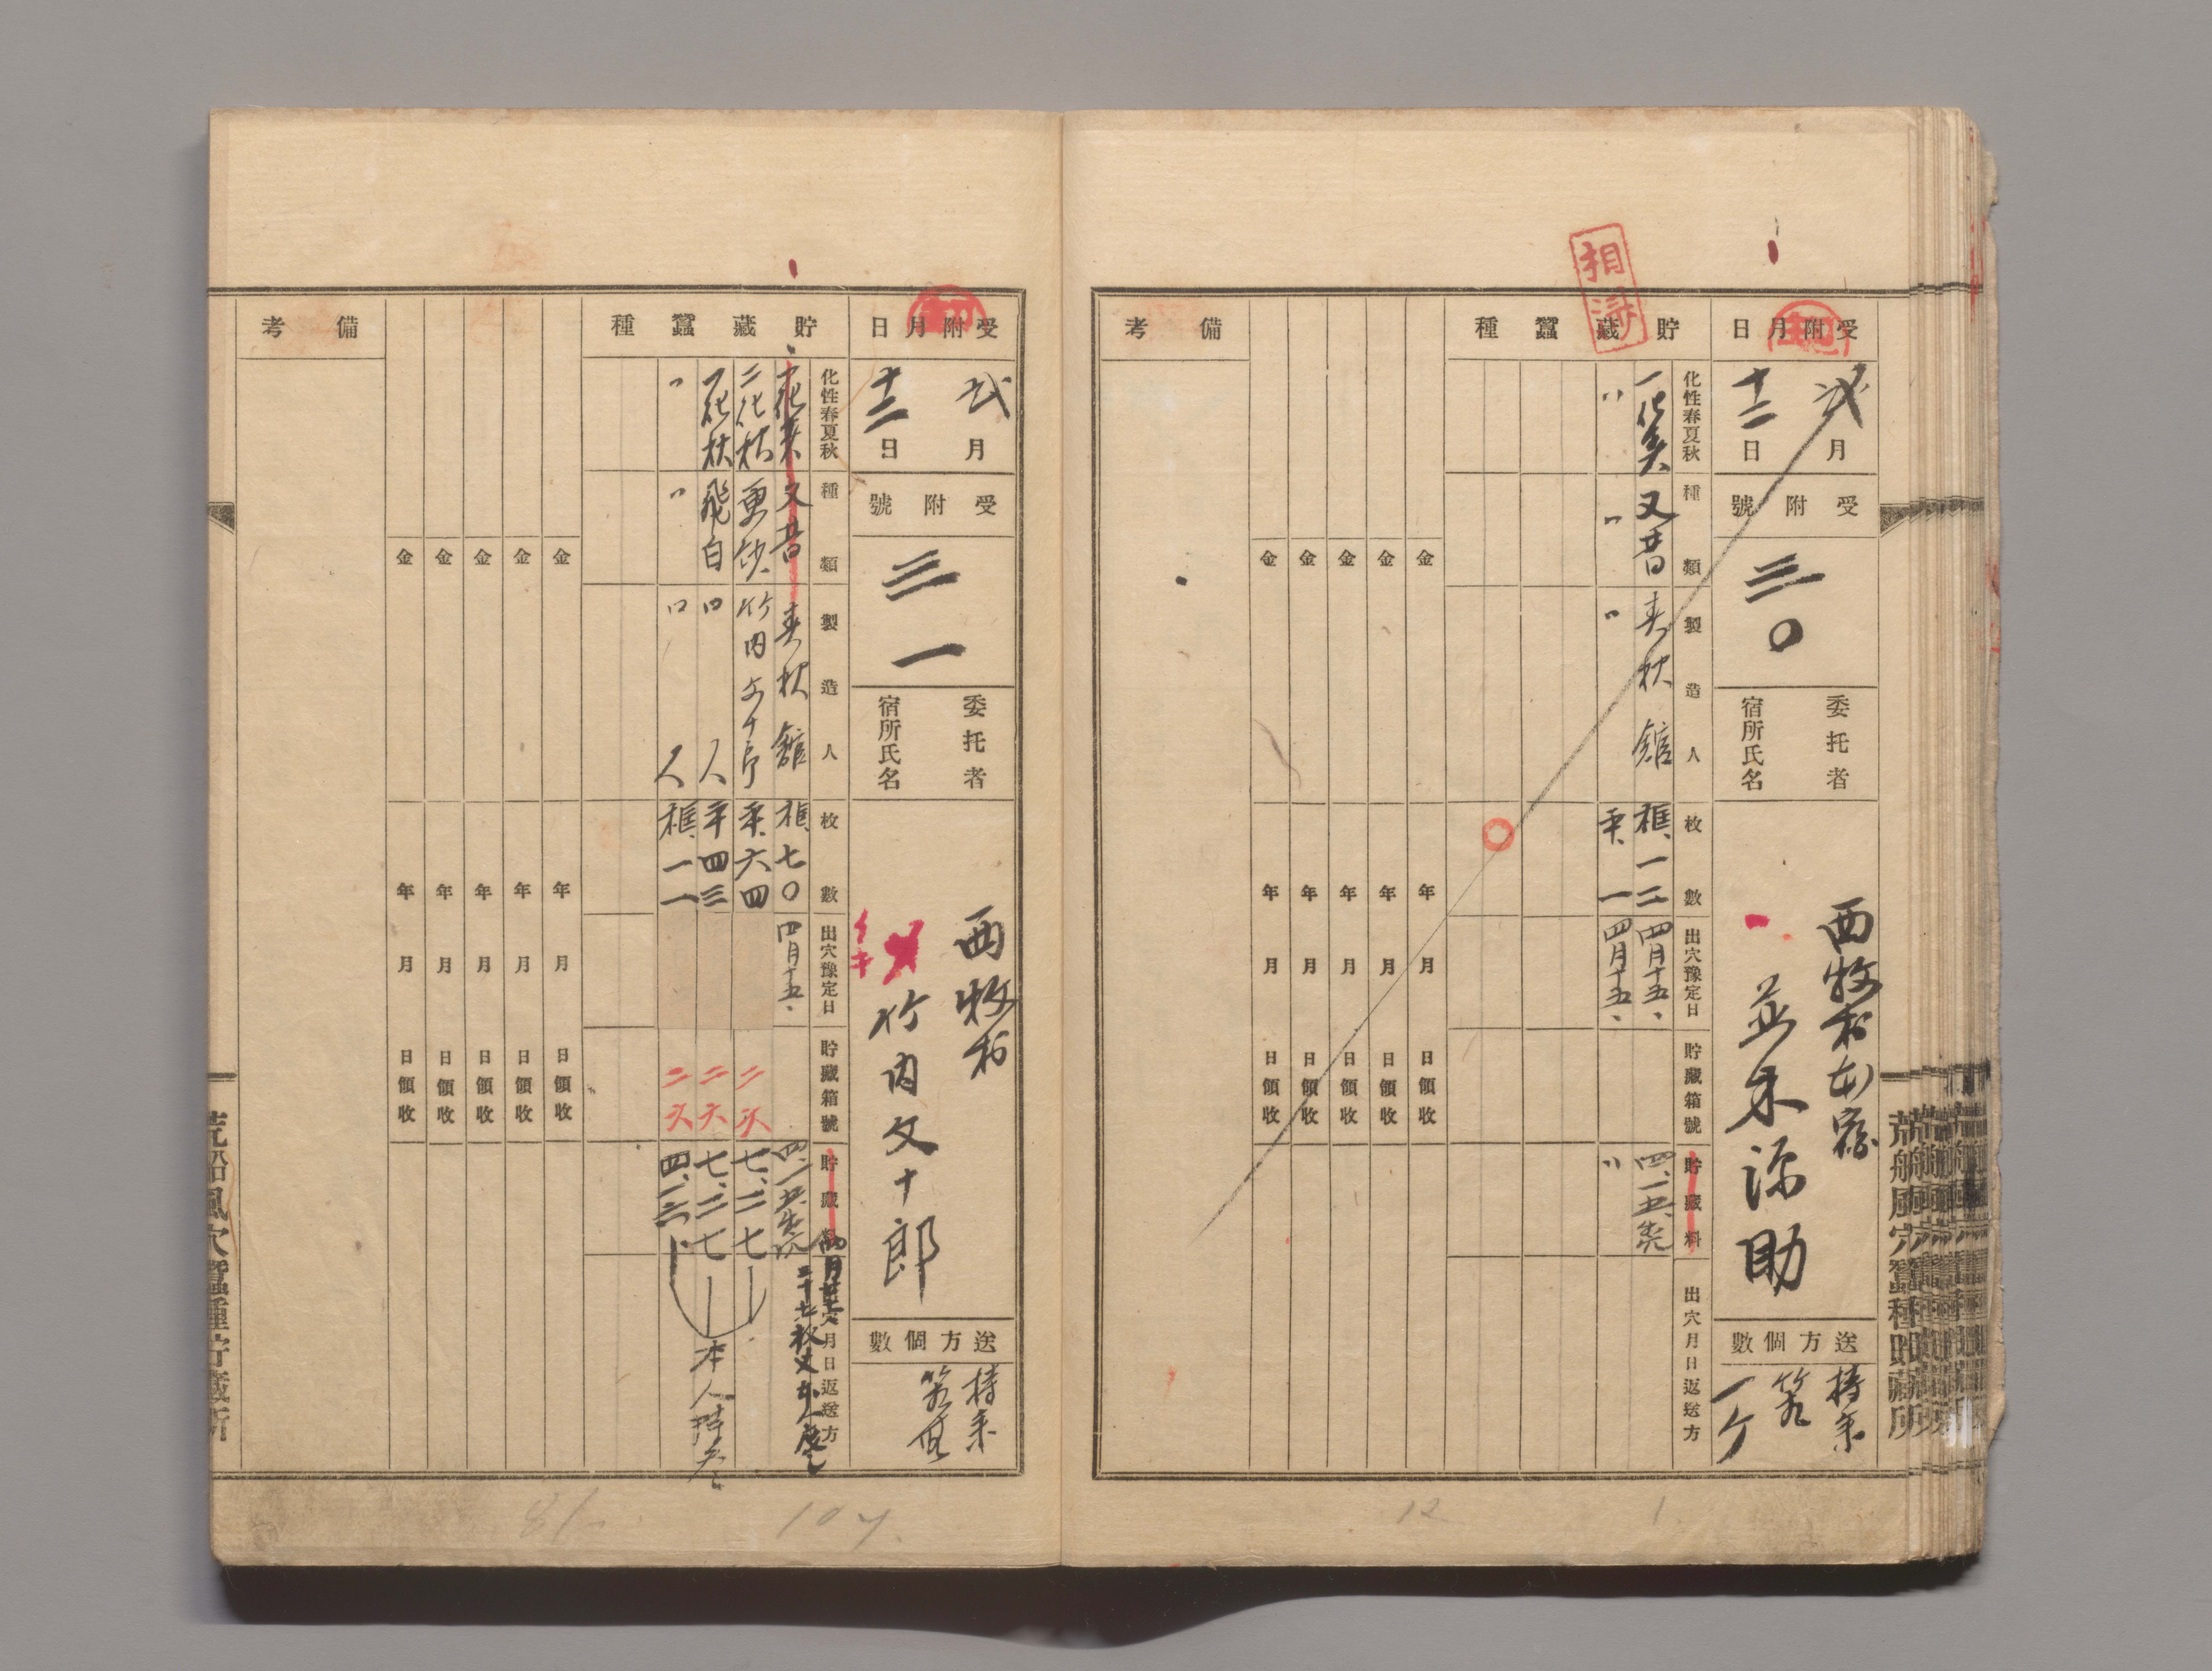 相済
受附月日
弐月
十二日
受附號
三〇
委托者
宿所氏名
西牧村本宿
並木源助
送方個數
持参
一ケ
貯藏蠶種
化性春夏秋
種類
製造人
枚數
出穴豫定日
貯藏箱號
貯藏料
出穴月日返送方
一化春 又昔 春秋館 框、一二 四月十五、 四、一五、
〃 〃 〃 平、一 四月十五、 〃
金 年 月 日領收
金 年 月 日領收
金 年 月 日領收
金 年 月 日領收
金 年 月 日領收
備考
荒船風穴蠶種貯藏所
12
1
受附月日
弐月
十二日
受附號
三一
委托者
宿所氏名
西牧村
竹内文十郎
送方個數
持参
貯藏蠶種
化性春夏秋
種類
製造人
枚數
出穴豫定日
貯藏箱號
貯藏料
出穴月日返送方
一化春 又昔 春秋館 框、七〇 四月十五、 四、一五、
二化秋 更紗 竹内文十郎 平、六四 二六 七、二七
一化秋 飛白 〃 人 平四三 二六 七、二七
〃 〃 〃 人 框、一一 二六 四、二三
本人持参
金 年 月 日領收
金 年 月 日領收
金 年 月 日領收
金 年 月 日領收
金 年 月 日領收
備考
荒船風穴蠶種貯藏所
107
81